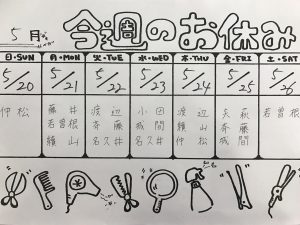 5月 今週のお休み
日・SUN 月・MON 火・TUE 水・WED 木・THU 金・FRI 土・SAT
5/20 5/21 5/22 5/23 5/24 5/25 5/26
仲松 藤井 渡辺 小田 渡辺 天萩 若曽根
若曽根 斉藤 城間 績山 斉藤
績山 名久井 名久井 仲松 城間